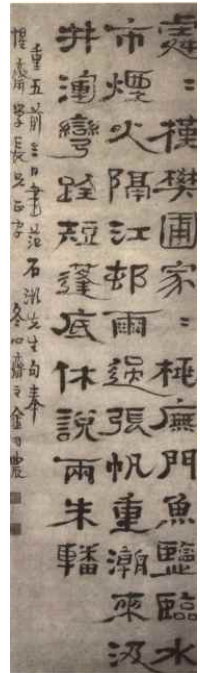 處〻槿樊圃家〻桅廡門魚鹽臨水
市煙火隔江邨雨過張帆重潮來汲
井渾彎跧短蓬底休說兩朱轓
重五前三日書范石湖先生句奉
惺齋學長兄正字 冬心齋金司農